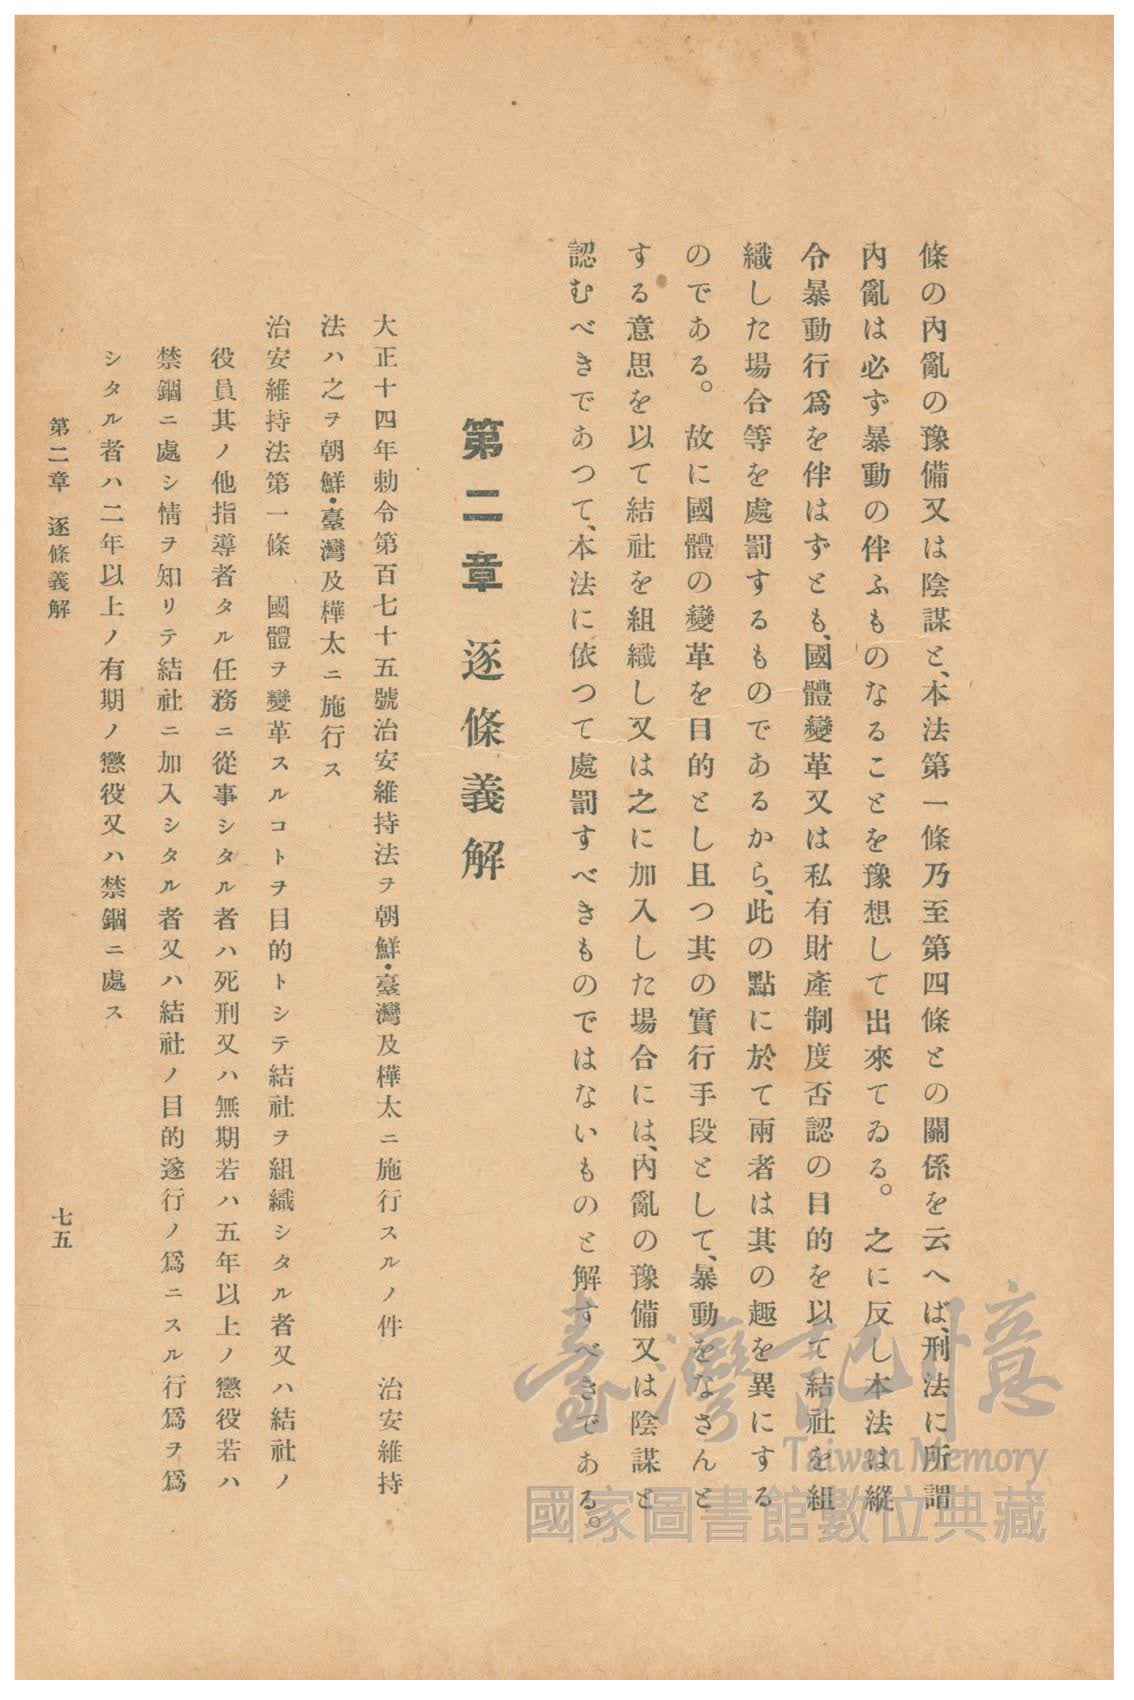 條の內亂の豫備又は陰謀と、本法第一條乃至第四條との關係を云へば、刑法に所謂
內亂は必ず暴動の伴ふものなることを豫想して出來てゐる。之に反し本法は縱
令暴動行爲を伴はずとも、國體變革又は私有財產制度否認の目的を以て結社を組
織した場合等を處罰するものであるから、此の點に於て兩者は其の趣を異にする
のである。故に國體の變革を目的とし且つ其の實行手段として、暴動をなさんと
する意思を以て結社を組織し又は之に加入した場合には、內亂の豫備又は陰謀と
認むべきであつて、本法に依つて處罰すべきものではないものと解すべきである。
第二章 逐條義解
大正十四年勅令第百七十五號治安維持法ヲ朝鮮・臺灣及樺太ニ施行スルノ件 治安維持
法ハ之ヲ朝鮮・臺灣及樺太ニ施行ス
治安維持法第一條 國體ヲ變革スルコトヲ目的トシテ結社ヲ組織シタル者又ハ結社ノ
役員其ノ他指導者タル任務ニ從事シタル者ハ死刑又ハ無期若ハ五年以上ノ懲役若ハ
禁錮ニ處シ情ヲ知リテ結社ニ加入シタル者又ハ結社ノ目的遂行ノ爲ニスル行爲ヲ爲
シタル者ハ二年以上ノ有期ノ懲役又ハ禁錮ニ處ス
第二章 逐條義解
七五
臺灣記憶
Taiwan Memory
國家圖書館數位典藏